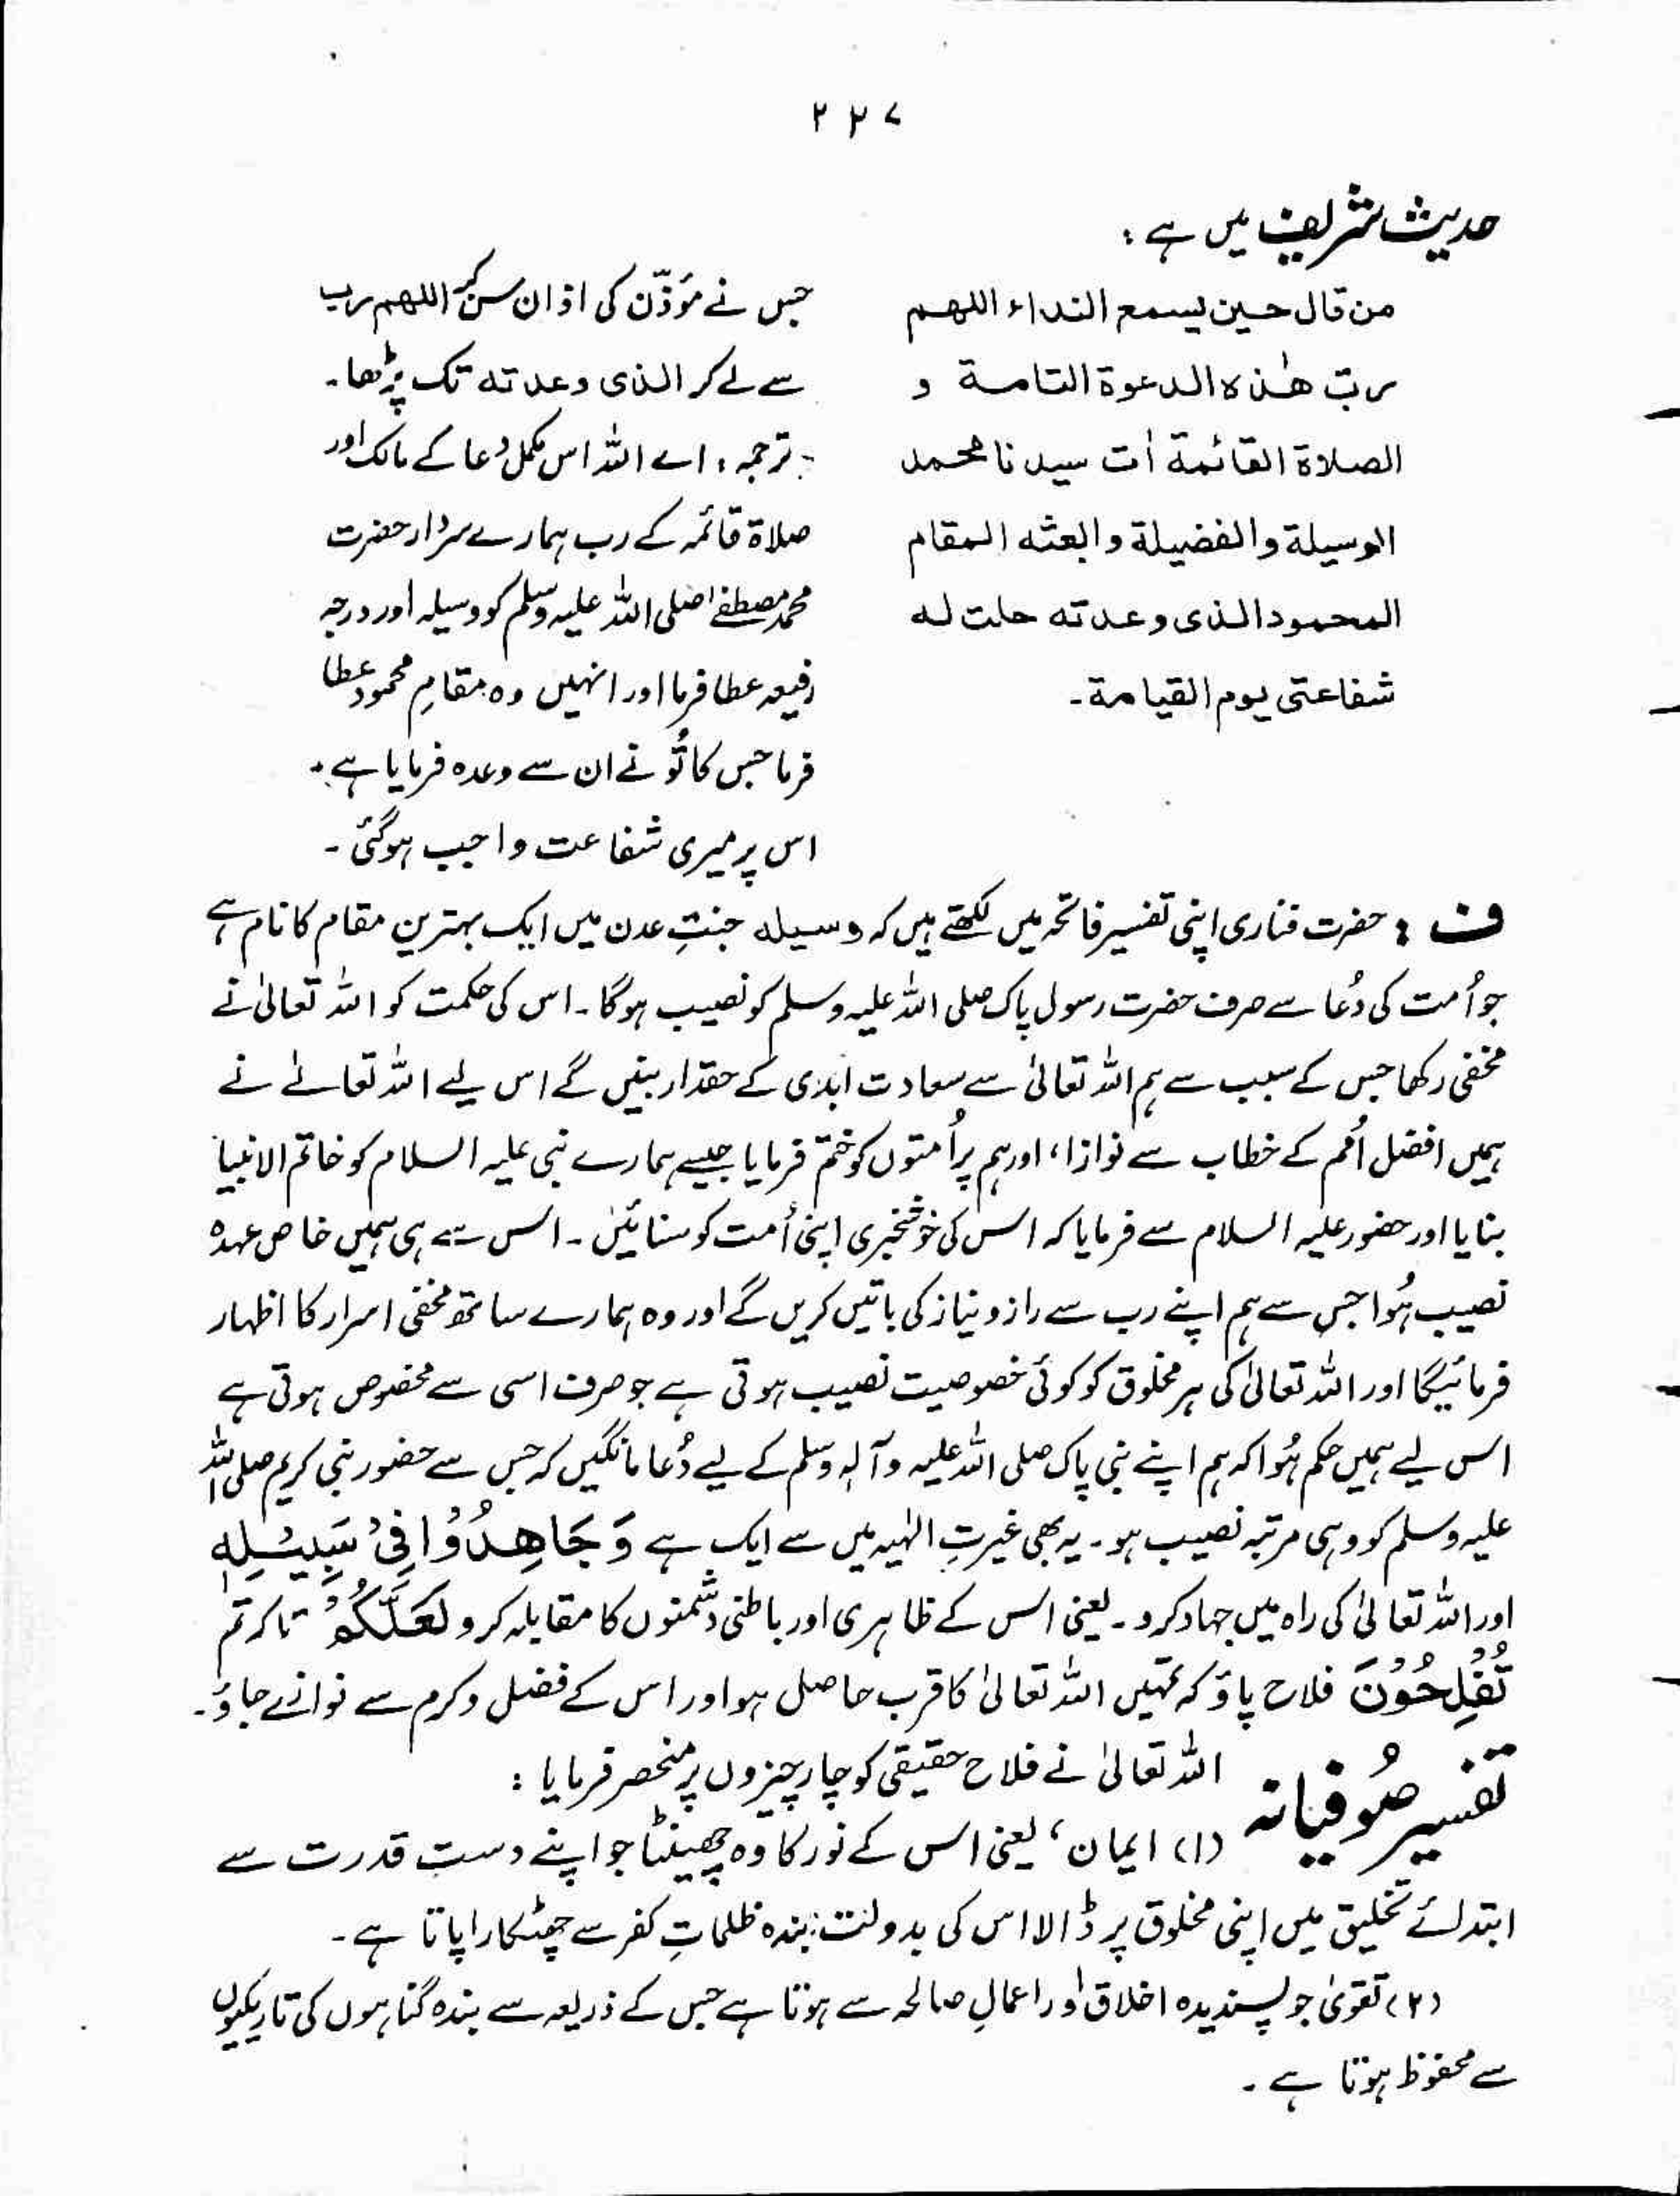 ۲۲۷
حدیث شریف میں ہے :
من قال حین یسمع النداء اللھم
رب ھٰذہ الدعوۃ التامۃ و
الصلاۃ القائمۃ اٰت سیدنا محمد
الوسیلۃ والفضیلۃ وابعثہ المقام
المحمود الذی وعدتہ حلت لہ
شفاعتی یوم القیامۃ۔
جس نے مؤذّن کی اذان سن کر اللھم رب
سے لے کر الذی وعدتہ تک پڑھا۔
ترجمہ : اے اللہ اس مکمل دعا کے مالک اور
صلاۃ قائمہ کے رب ہمارے سردار حضرت
محمد مصطفےٰ صلی اللہ علیہ وسلم کو وسیلہ اور درجہ
رفیعہ عطا فرما اور انہیں وہ مقامِ محمود عطا
فرما جس کا تُو نے ان سے وعدہ فرمایا ہے۔
اس پر میری شفاعت واجب ہوگئی۔
ف : حضرت فناری اپنی تفسیر فاتحہ میں لکھتے ہیں کہ وسیلہ جنتِ عدن میں ایک بہترین مقام کا نام ہے
جو اُمت کی دُعا سے صرف حضرت رسول پاک صلی اللہ علیہ وسلم کو نصیب ہوگا۔ اس کی حکمت کو اللہ تعالیٰ نے
مخفی رکھا جس کے سبب سے ہم اللہ تعالیٰ سے سعادت ابدی کے حقدار بنیں گے اس لیے اللہ تعالےٰ نے
ہمیں افضل اُمم کے خطاب سے نوازا، اور ہم پر اُمتوں کو ختم فرمایا جیسے ہمارے نبی علیہ السلام کو خاتم الانبیا
بنایا اور حضور علیہ السلام سے فرمایا کہ اس کی خوشخبری اپنی اُمت کو سنائیں۔ اس سے ہی ہمیں خاص عہدہ
نصیب ہُوا جس سے ہم اپنے رب سے راز و نیاز کی باتیں کریں گے اور وہ ہمارے ساتھ مخفی اسرار کا اظہار
فرمائیگا اور اللہ تعالیٰ کی ہر مخلوق کو کوئی خصوصیت نصیب ہوتی ہے جو صرف اسی سے مخصوص ہوتی ہے
اس لیے ہمیں حکم ہُوا کہ ہم اپنے نبی پاک صلی اللہ علیہ وآلہٖ وسلم کے لیے دُعا مانگیں کہ جس سے حضور نبی کریم صلی اللہ
علیہ وسلم کو وہی مرتبہ نصیب ہو۔ یہ بھی غیرتِ الٰہیہ میں سے ایک ہے وَجَاهِدُوْا فِیْ سَبِیْلِهٖ
اور اللہ تعالیٰ کی راہ میں جہاد کرو۔ یعنی اس کے ظاہری اور باطنی دشمنوں کا مقابلہ کرو لَعَلَّكُمْ تاکہ تم
تُفْلِحُوْنَ فلاح پاؤ کہ تمہیں اللہ تعالیٰ کا قرب حاصل ہو اور اس کے فضل و کرم سے نوازے جاؤ۔
تفسیر صُوفیانہ اللہ تعالیٰ نے فلاح حقیقی کو چار چیزوں پر منحصر فرمایا :
(۱) ایمان، یعنی اس کے نور کا وہ چھینٹا جو اپنے دستِ قدرت سے
ابتدائے تخلیق میں اپنی مخلوق پر ڈالا اس کی بدولت بندہ ظلماتِ کفر سے چھٹکارا پاتا ہے۔
(۲) تقویٰ جو پسندیدہ اخلاق اور اعمالِ صالحہ سے ہوتا ہے جس کے ذریعہ سے بندہ گناہوں کی تاریکیوں
سے محفوظ ہوتا ہے۔